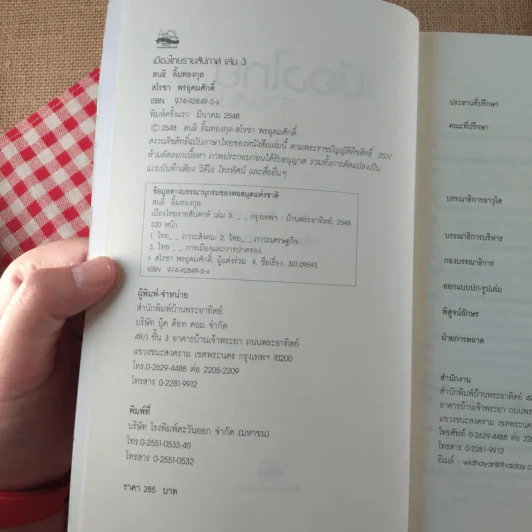 เมืองไทยรายสัปดาห์ เล่ม 3
สนธิ ลิ้มทองกุล
สโรชา พรอุดมศักดิ์
ISBN 974-92849-5-x
พิมพ์ครั้งแรก มีนาคม 2548
© 2548 สนธิ ลิ้มทองกุล-สโรชา พรอุดมศักดิ์
สงวนลิขสิทธิ์ฉบับภาษาไทยของหนังสือเล่มนี้ ตามพระราชบัญญัติลิขสิทธิ์ 2537
ห้ามคัดลอกเนื้อหา ภาพประกอบก่อนได้รับอนุญาต รวมทั้งการดัดแปลงเป็น
แถบบันทึกเสียง วิดีโอ โทรทัศน์ และสื่ออื่นๆ
ข้อมูลทางบรรณานุกรมของหอสมุดแห่งชาติ
สนธิ ลิ้มทองกุล.
เมืองไทยรายสัปดาห์ เล่ม 3. _ _ กรุงเทพฯ : บ้านพระอาทิตย์, 2548.
320 หน้า.
1. ไทย_ _ ภาวะสังคม. 2. ไทย_ _ ภาวะเศรษฐกิจ.
3. ไทย _ _ การเมืองและการปกครอง.
I. สโรชา พรอุดมศักดิ์, ผู้แต่งร่วม. II. ชื่อเรื่อง. 301.09593
ISBN 974-92849-5-x
ผู้พิมพ์-จำหน่าย
สำนักพิมพ์บ้านพระอาทิตย์
บริษัท บุ๊ค ด็อท คอม จำกัด
49/1 ชั้น 3 อาคารบ้านเจ้าพระยา ถนนพระอาทิตย์
แขวงชนะสงคราม เขตพระนคร กรุงเทพฯ 10200
โทร.0-2629-4488 ต่อ 2205-2209
โทรสาร 0-2281-9912
พิมพ์ที่
บริษัท โรงพิมพ์ตะวันออก จำกัด (มหาชน)
โทร.0-2551-0533-40
โทรสาร 0-2551-0532
ราคา 285 บาท
ประธานที่ปรึกษา
คณะที่ปรึกษา
บรรณาธิการอาวุโส
บรรณาธิการบริหาร
กองบรรณาธิการ
ออกแบบปก-รูปเล่ม
พิสูจน์อักษร
ฝ่ายการตลาด
สำนักงาน
สำนักพิมพ์บ้านพระอาทิตย์ 49
อาคารบ้านเจ้าพระยา ถนนพระ
แขวงชนะสงคราม เขตพระนคร
โทรศัพท์ 0-2629-4488 ต่อ
โทรสาร 0-2281-9912
อีเมล์ : widhaya@thaiday.c